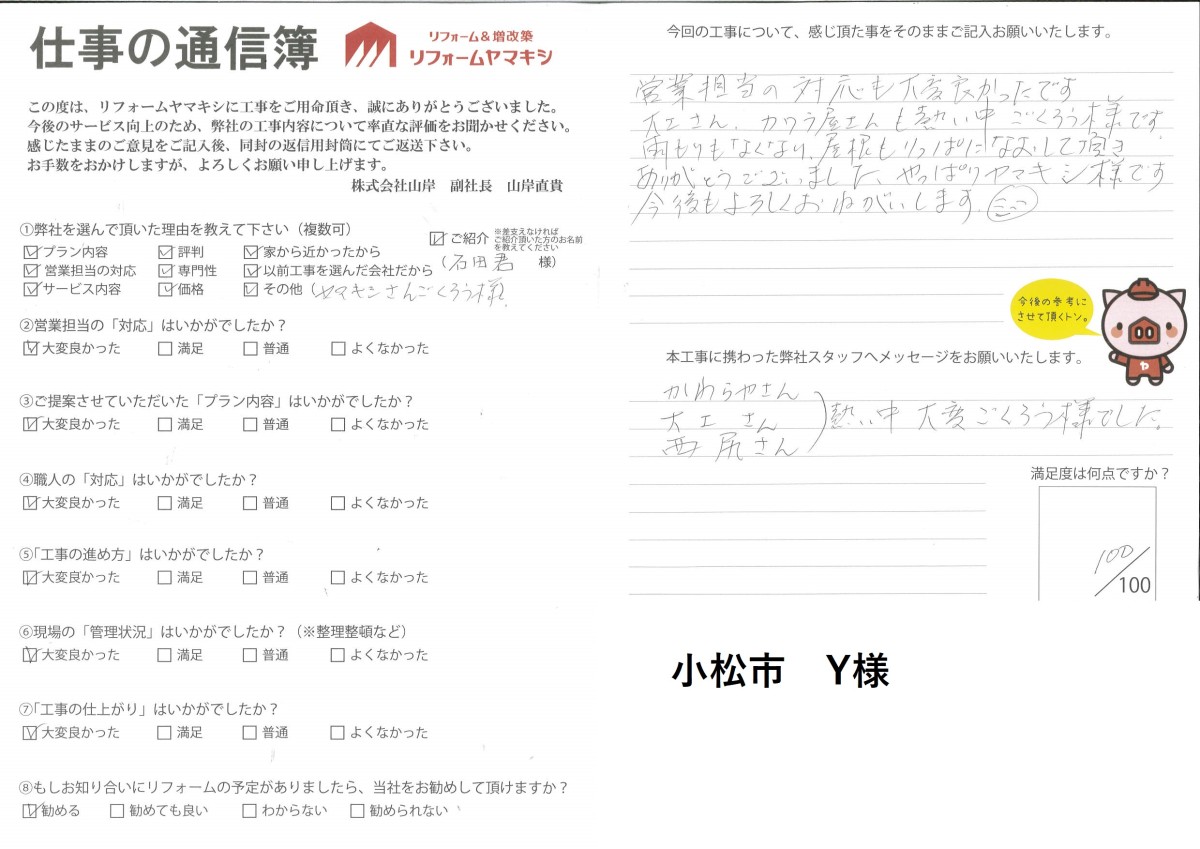 仕事の通信簿
リフォーム&増改築
リフォームヤマキシ
この度は、リフォームヤマキシに工事をご用命頂き、誠にありがとうございました。
今後のサービス向上のため、弊社の工事内容について率直な評価をお聞かせください。
感じたままのご意見をご記入後、同封の返信用封筒にてご返送下さい。
お手数をおかけしますが、よろしくお願い申し上げます。
株式会社山岸 副社長 山岸直貴
①弊社を選んで頂いた理由を教えて下さい(複数可)
☑プラン内容 ☑評判 ☑家から近かったから
☑営業担当の対応 ☑専門性 ☑以前工事を選んだ会社だから
☑サービス内容 ☑価格 ☑その他(ヤマキシさんごくろう様
☑ご紹介 ※差支えなければ
ご紹介頂いた方のお名前
を教えてください
(石田君 様)
②営業担当の「対応」はいかがでしたか?
☑大変良かった □満足 □普通 □よくなかった
③ご提案させていただいた「プラン内容」はいかがでしたか?
☑大変良かった □満足 □普通 □よくなかった
④職人の「対応」はいかがでしたか?
☑大変良かった □満足 □普通 □よくなかった
⑤「工事の進め方」はいかがでしたか?
☑大変良かった □満足 □普通 □よくなかった
⑥現場の「管理状況」はいかがでしたか?(※整理整頓など)
☑大変良かった □満足 □普通 □よくなかった
⑦「工事の仕上がり」はいかがでしたか?
☑大変良かった □満足 □普通 □よくなかった
⑧もしお知り合いにリフォームの予定がありましたら、当社をお勧めして頂けますか?
☑勧める □勧めても良い □わからない □勧められない
今回の工事について、感じ頂た事をそのままご記入お願いいたします。
営業担当の対応も大変良かったです
大工さん、カワラ屋さんも熱い中ごくろう様です
雨もりもなくなり、屋根もりっぱになおして頂き
ありがとうございました、やっぱりヤマキシ様です
今後もよろしくおねがいします。
今後の参考に
させて頂くトン。
ヤ
本工事に携わった弊社スタッフへメッセージをお願いいたします。
かわらやさん
大工さん
西尻さん
)熱い中大変ごくろう様でした。
満足度は何点ですか?
100/100
小松市 Y様